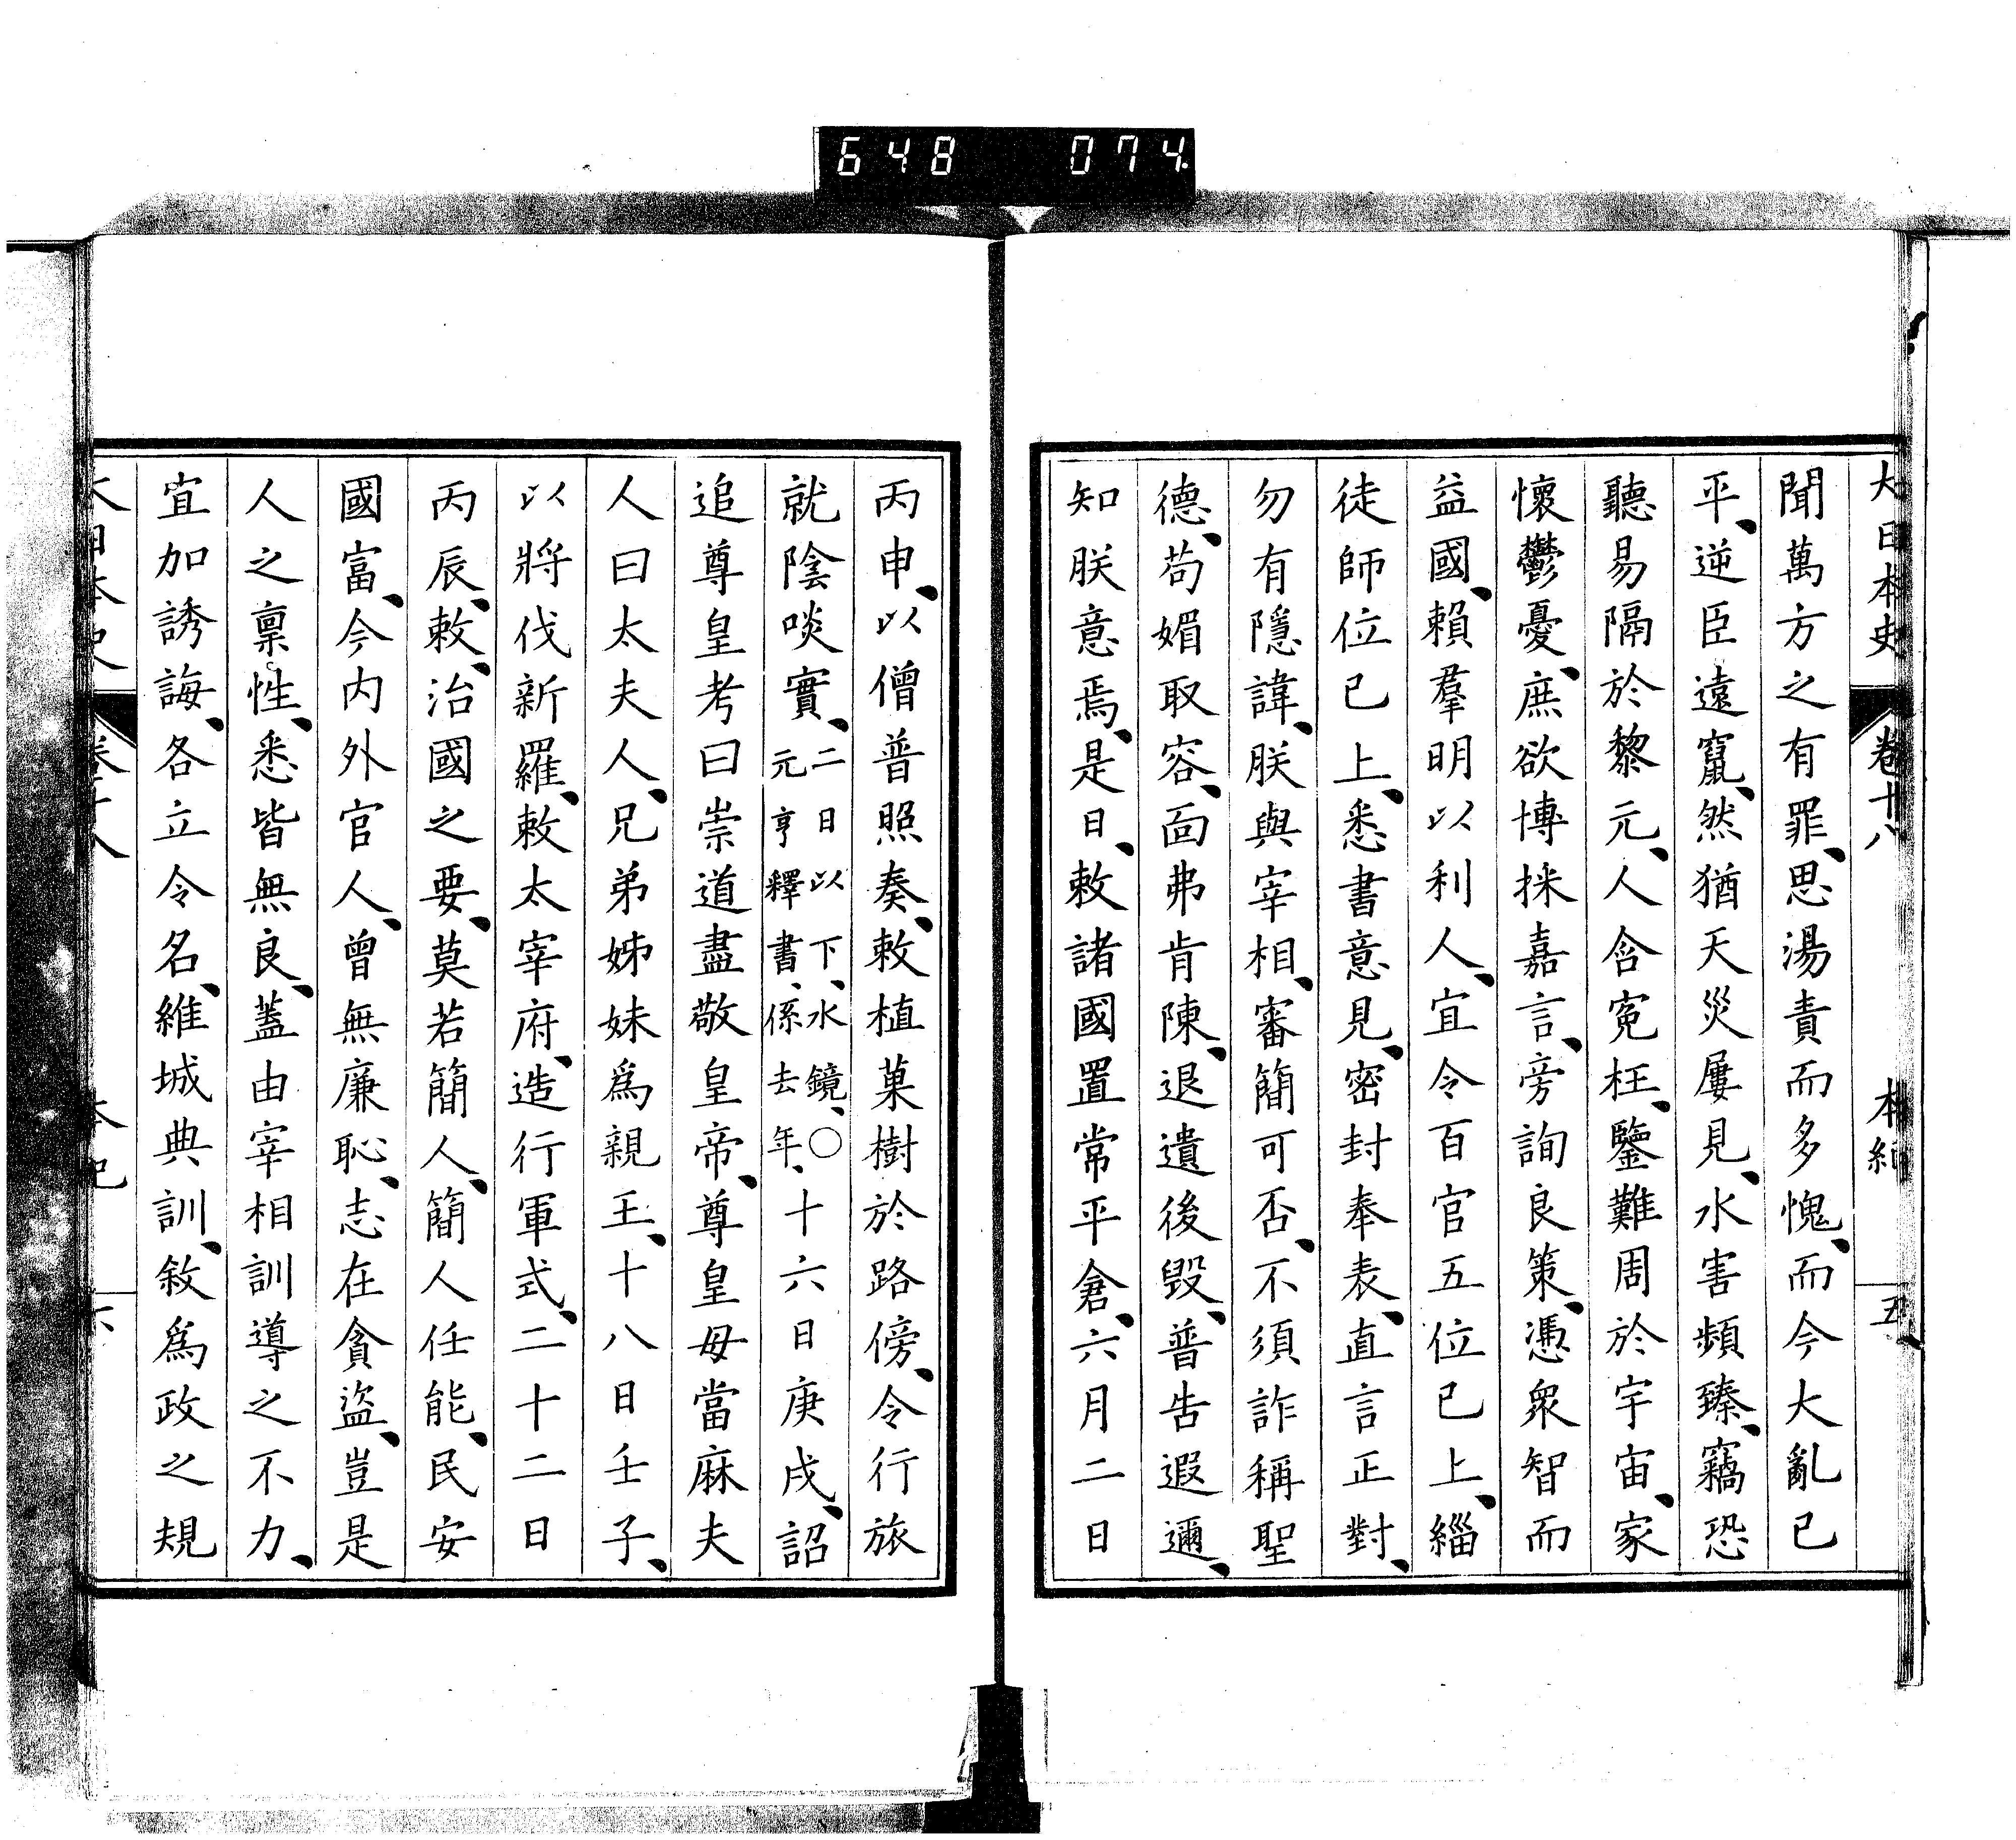 648 074
大日本史 卷十八 本紀 五
聞萬方之有罪、思湯責而多愧、而今大亂已
平、逆臣遠竄、然猶天災屢見、水害頻臻、竊恐
聽易隔於黎元、人含寃枉、鑒難周於宇宙、家
懷鬱憂、庶欲博採嘉言、旁詢良策、憑衆智而
益國、賴羣明以利人、宜令百官五位已上、緇
徒師位已上、悉書意見、密封奉表、直言正對、
勿有隱諱、朕與宰相、審簡可否、不須詐稱聖
德、苟媚取容、面弗肯陳、退遺後毀、普告遐邇、
知朕意焉、是日、敕諸國置常平倉、六月二日
丙申、以僧普照奏、敕植菓樹於路傍、令行旅
就陰啖實、二日以下、水鏡、〇元亨釋書、係去年、十六日庚戌、詔
追尊皇考曰崇道盡敬皇帝、尊皇母當麻夫
人曰太夫人、兄弟姊妹爲親王、十八日壬子、
以將伐新羅、敕太宰府、造行軍式、二十二日
丙辰、敕、治國之要、莫若簡人、簡人任能、民安
國富、今內外官人、曾無廉恥、志在貪盜、豈是
人之稟性、悉皆無良、蓋由宰相訓導之不力、
宜加誘誨、各立令名、維城典訓、敘爲政之規
大日本史 卷十八 本紀 六